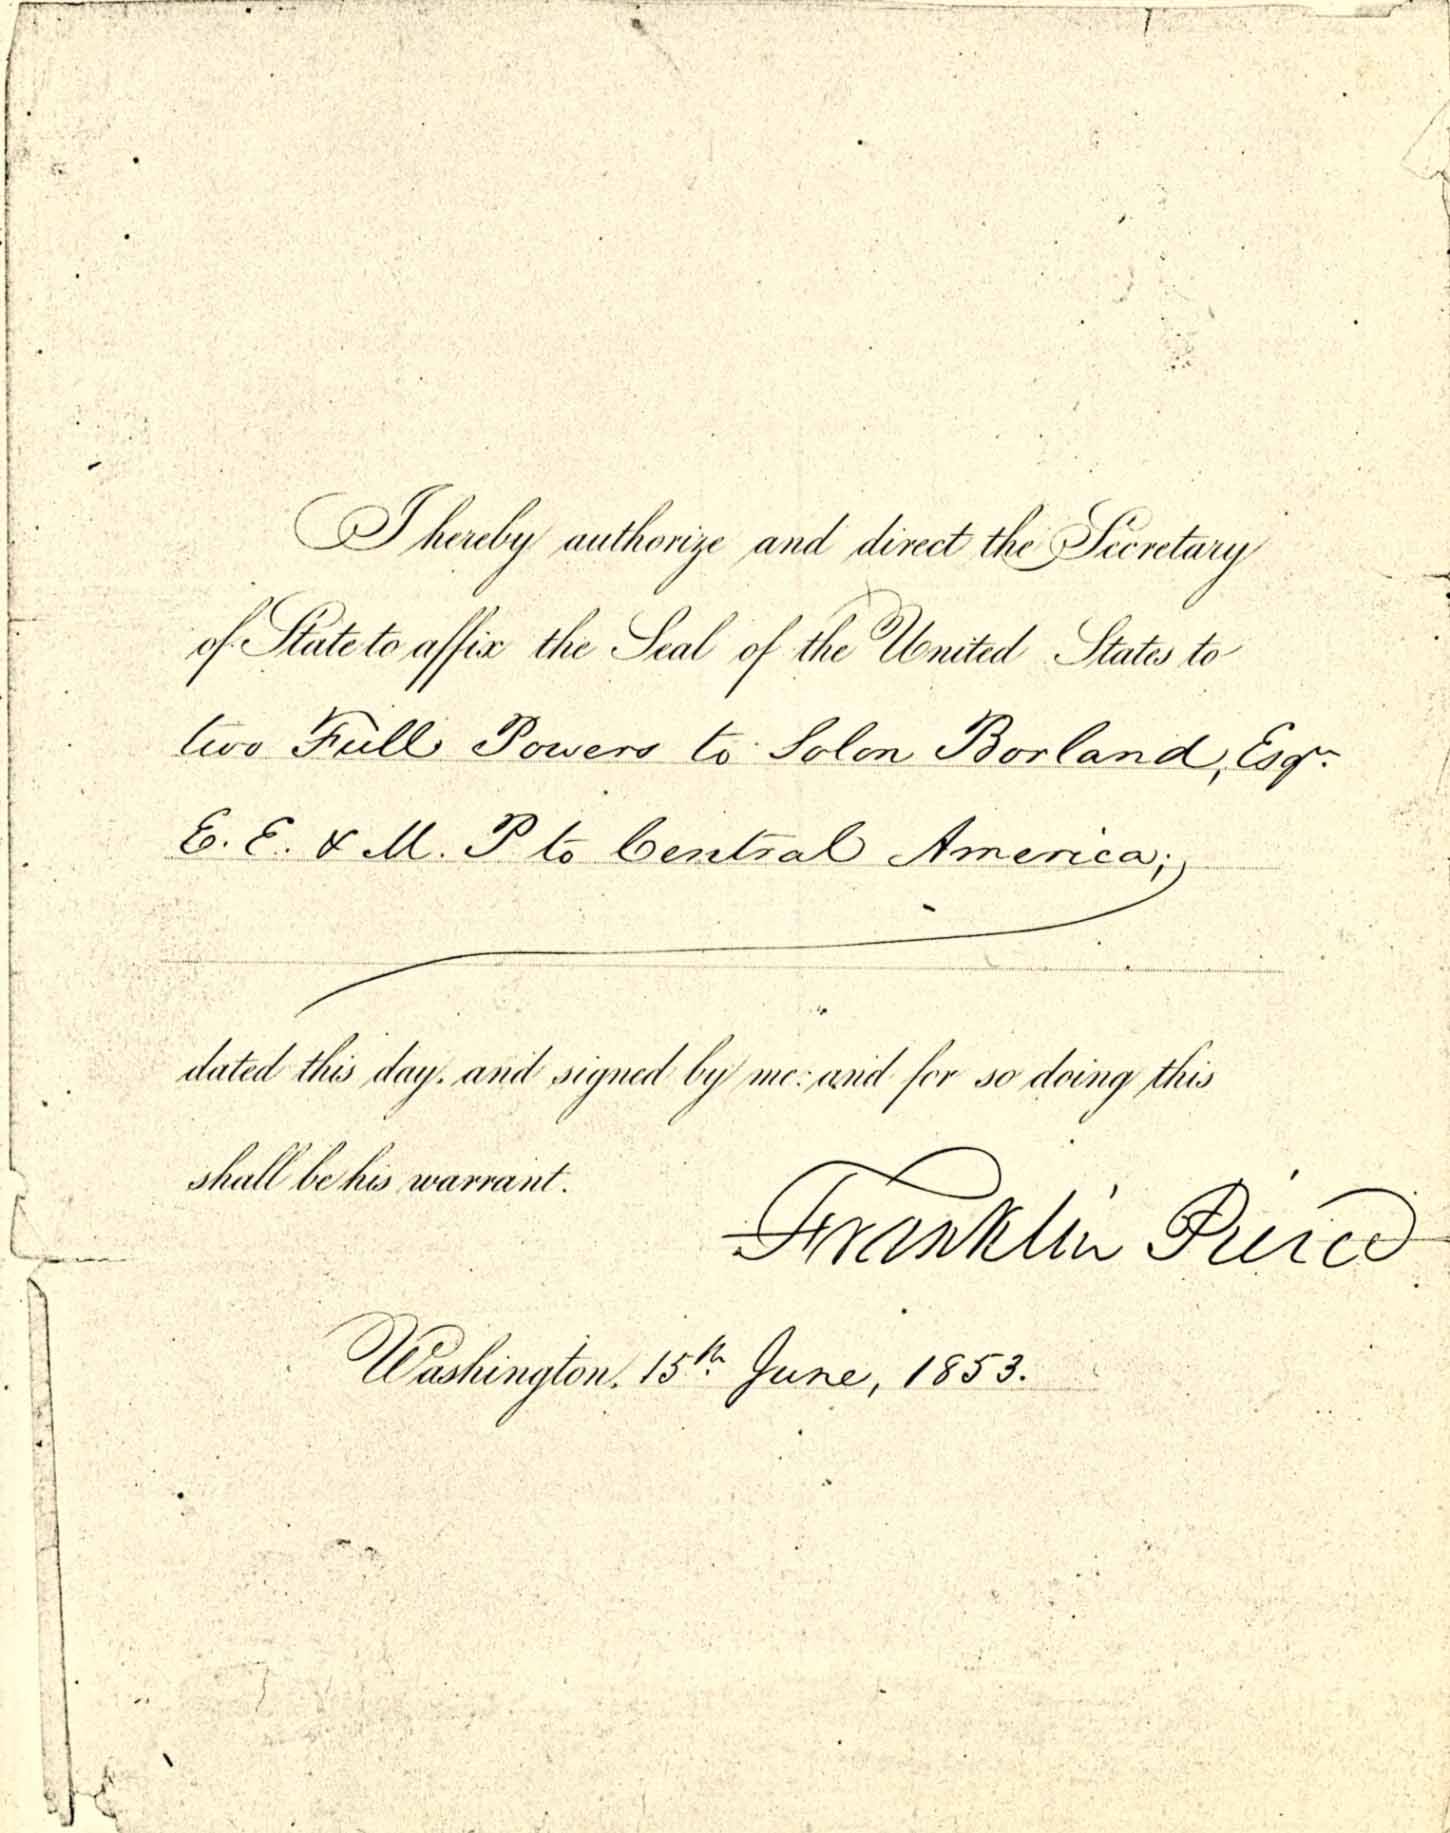 I hereby authorize and direct the Secretary
of State to affix the Seal of the United States to
two Full Powers to Solon Borland, Esqr.
E. E. & M. P to Central America;
dated this day, and signed by me: and for so doing this
shall be his warrant.
Franklin Pierce
Washington, 15th June, 1853.